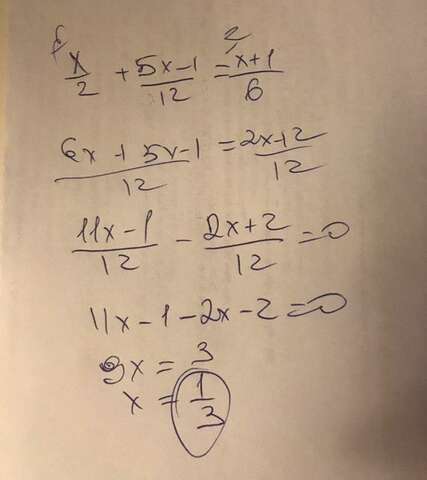 6 2
x/2 + 5x-1/12 = x+1/6
6x + 5x-1/12 = 2x+2/12
11x-1/12 - 2x+2/12 = 0
11x-1-2x-2=0
9x = 3
x = 1/3